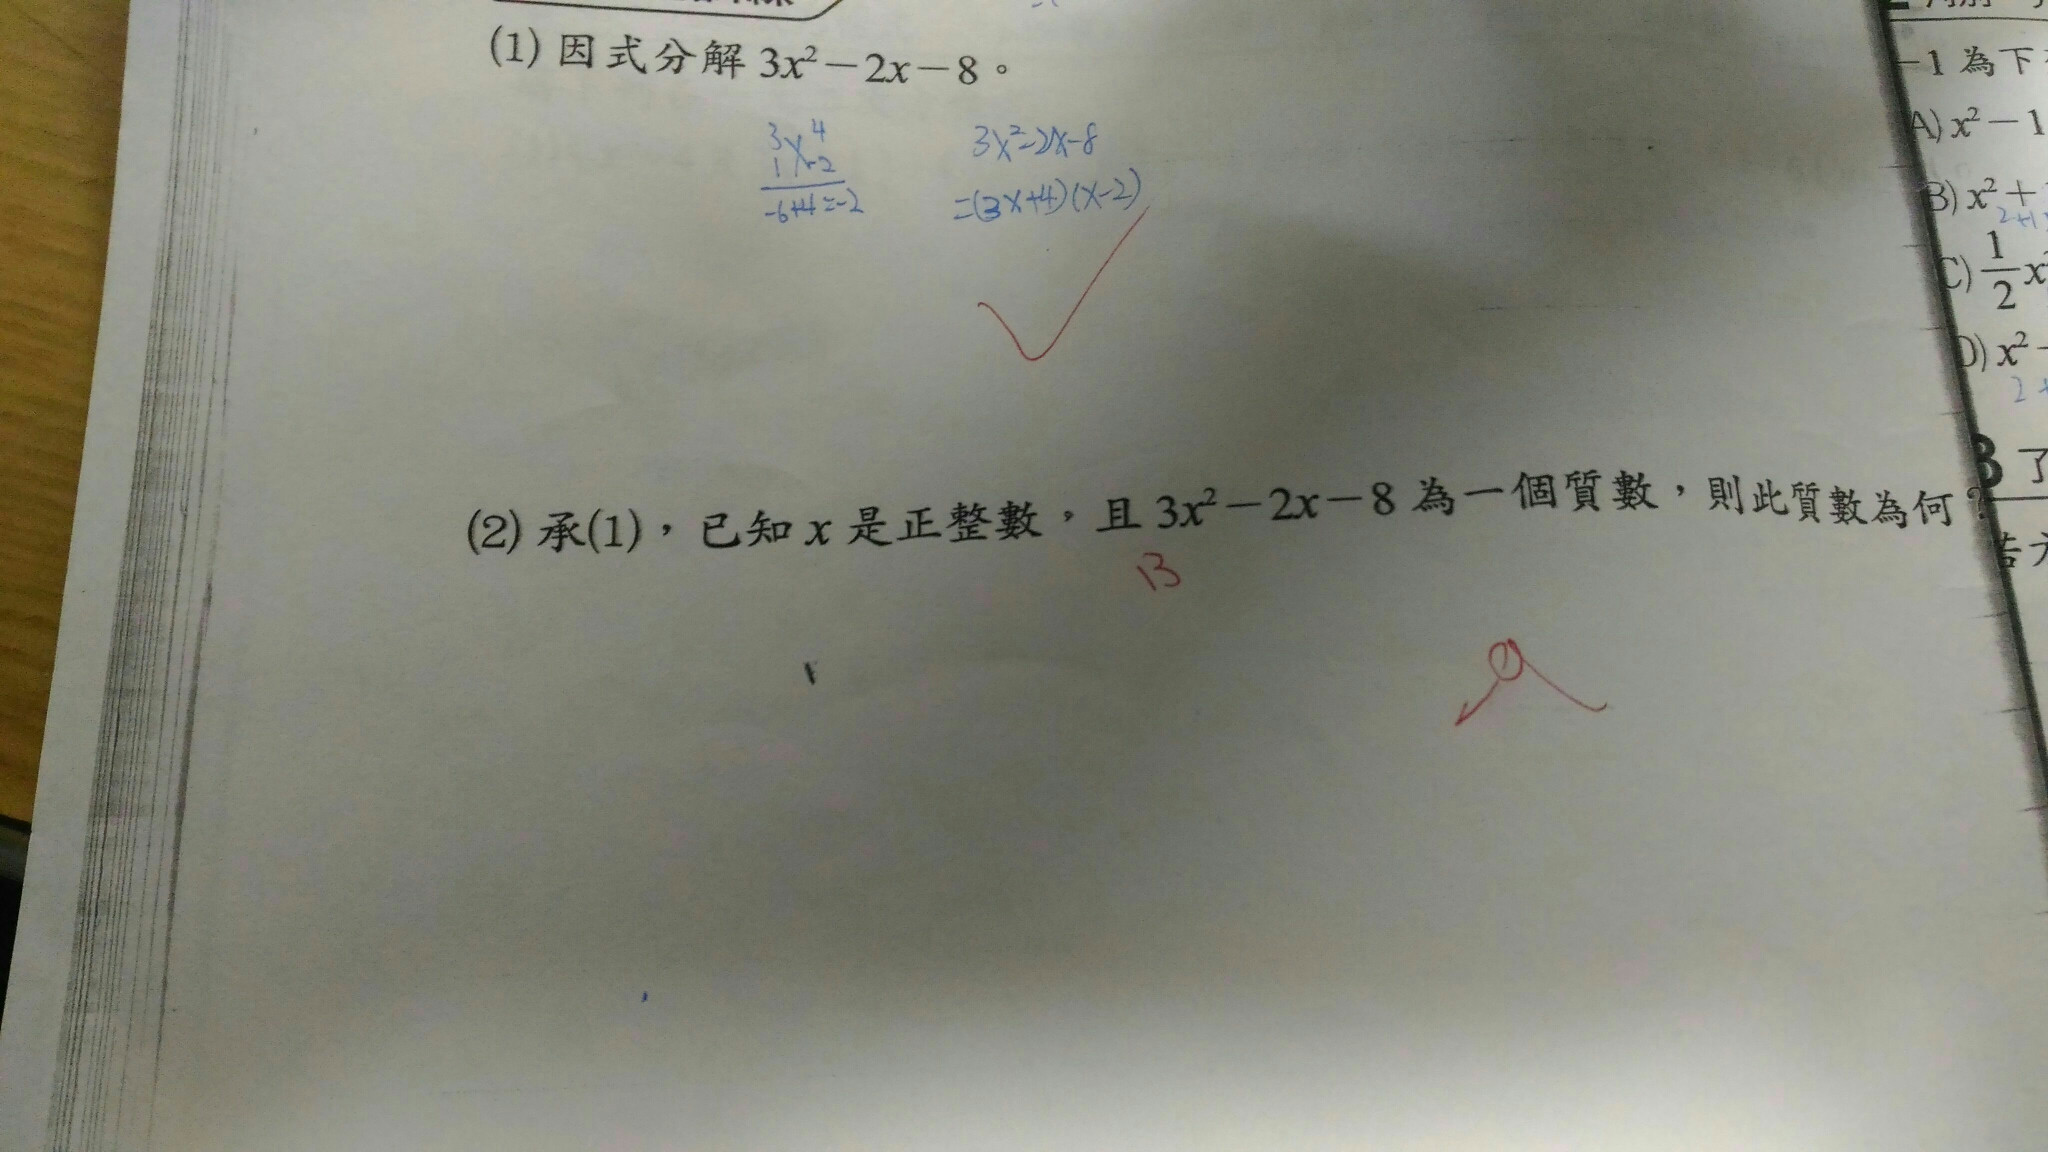 (1) 因式分解 3x²－2x－8。
3 4
1 -2
-6+4=-2
3x²-2x-8
=(3x+4)(x-2)
(2) 承(1)，已知 x 是正整數，且 3x²－2x－8 為一個質數，則此質數為何？
13
-1 為下
A) x²－1
B) x²＋
2+1
C) 1/2 x²
D) x²－
2
3 了